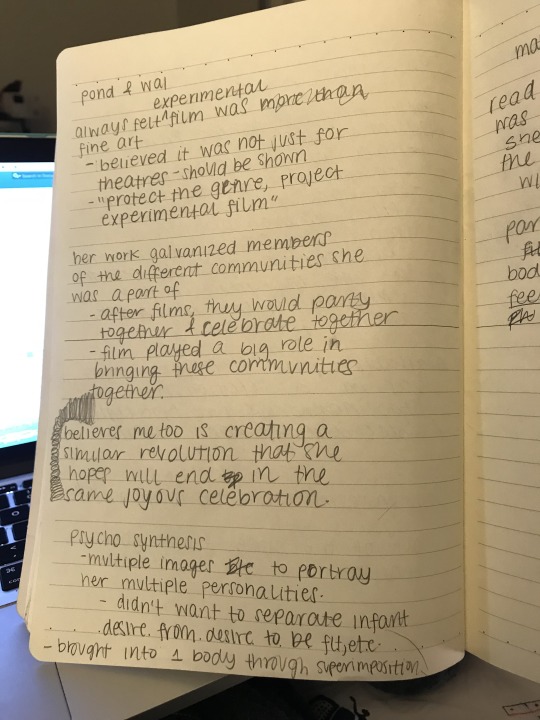 pond & wal
experimental
always felt ^ film was more than
fine art
- believed it was not just for
theatres - should be shown
- "protect the genre, project
experimental film"
her work galvanized members
of the different communities she
was a part of
- after films, they would party
together & celebrate together
- film played a big role in
bringing these communities
together.
believes me too is creating a
similar revolution that she
hopes will end in the
same joyous celebration.
psycho synthesis
- multiple images to portray
her multiple personalities.
- didn't want to separate infant
desire from desire to be fit, etc.
- brought into 1 body through superimposition
ma
read
was
she
the
wi
par
bod
fee